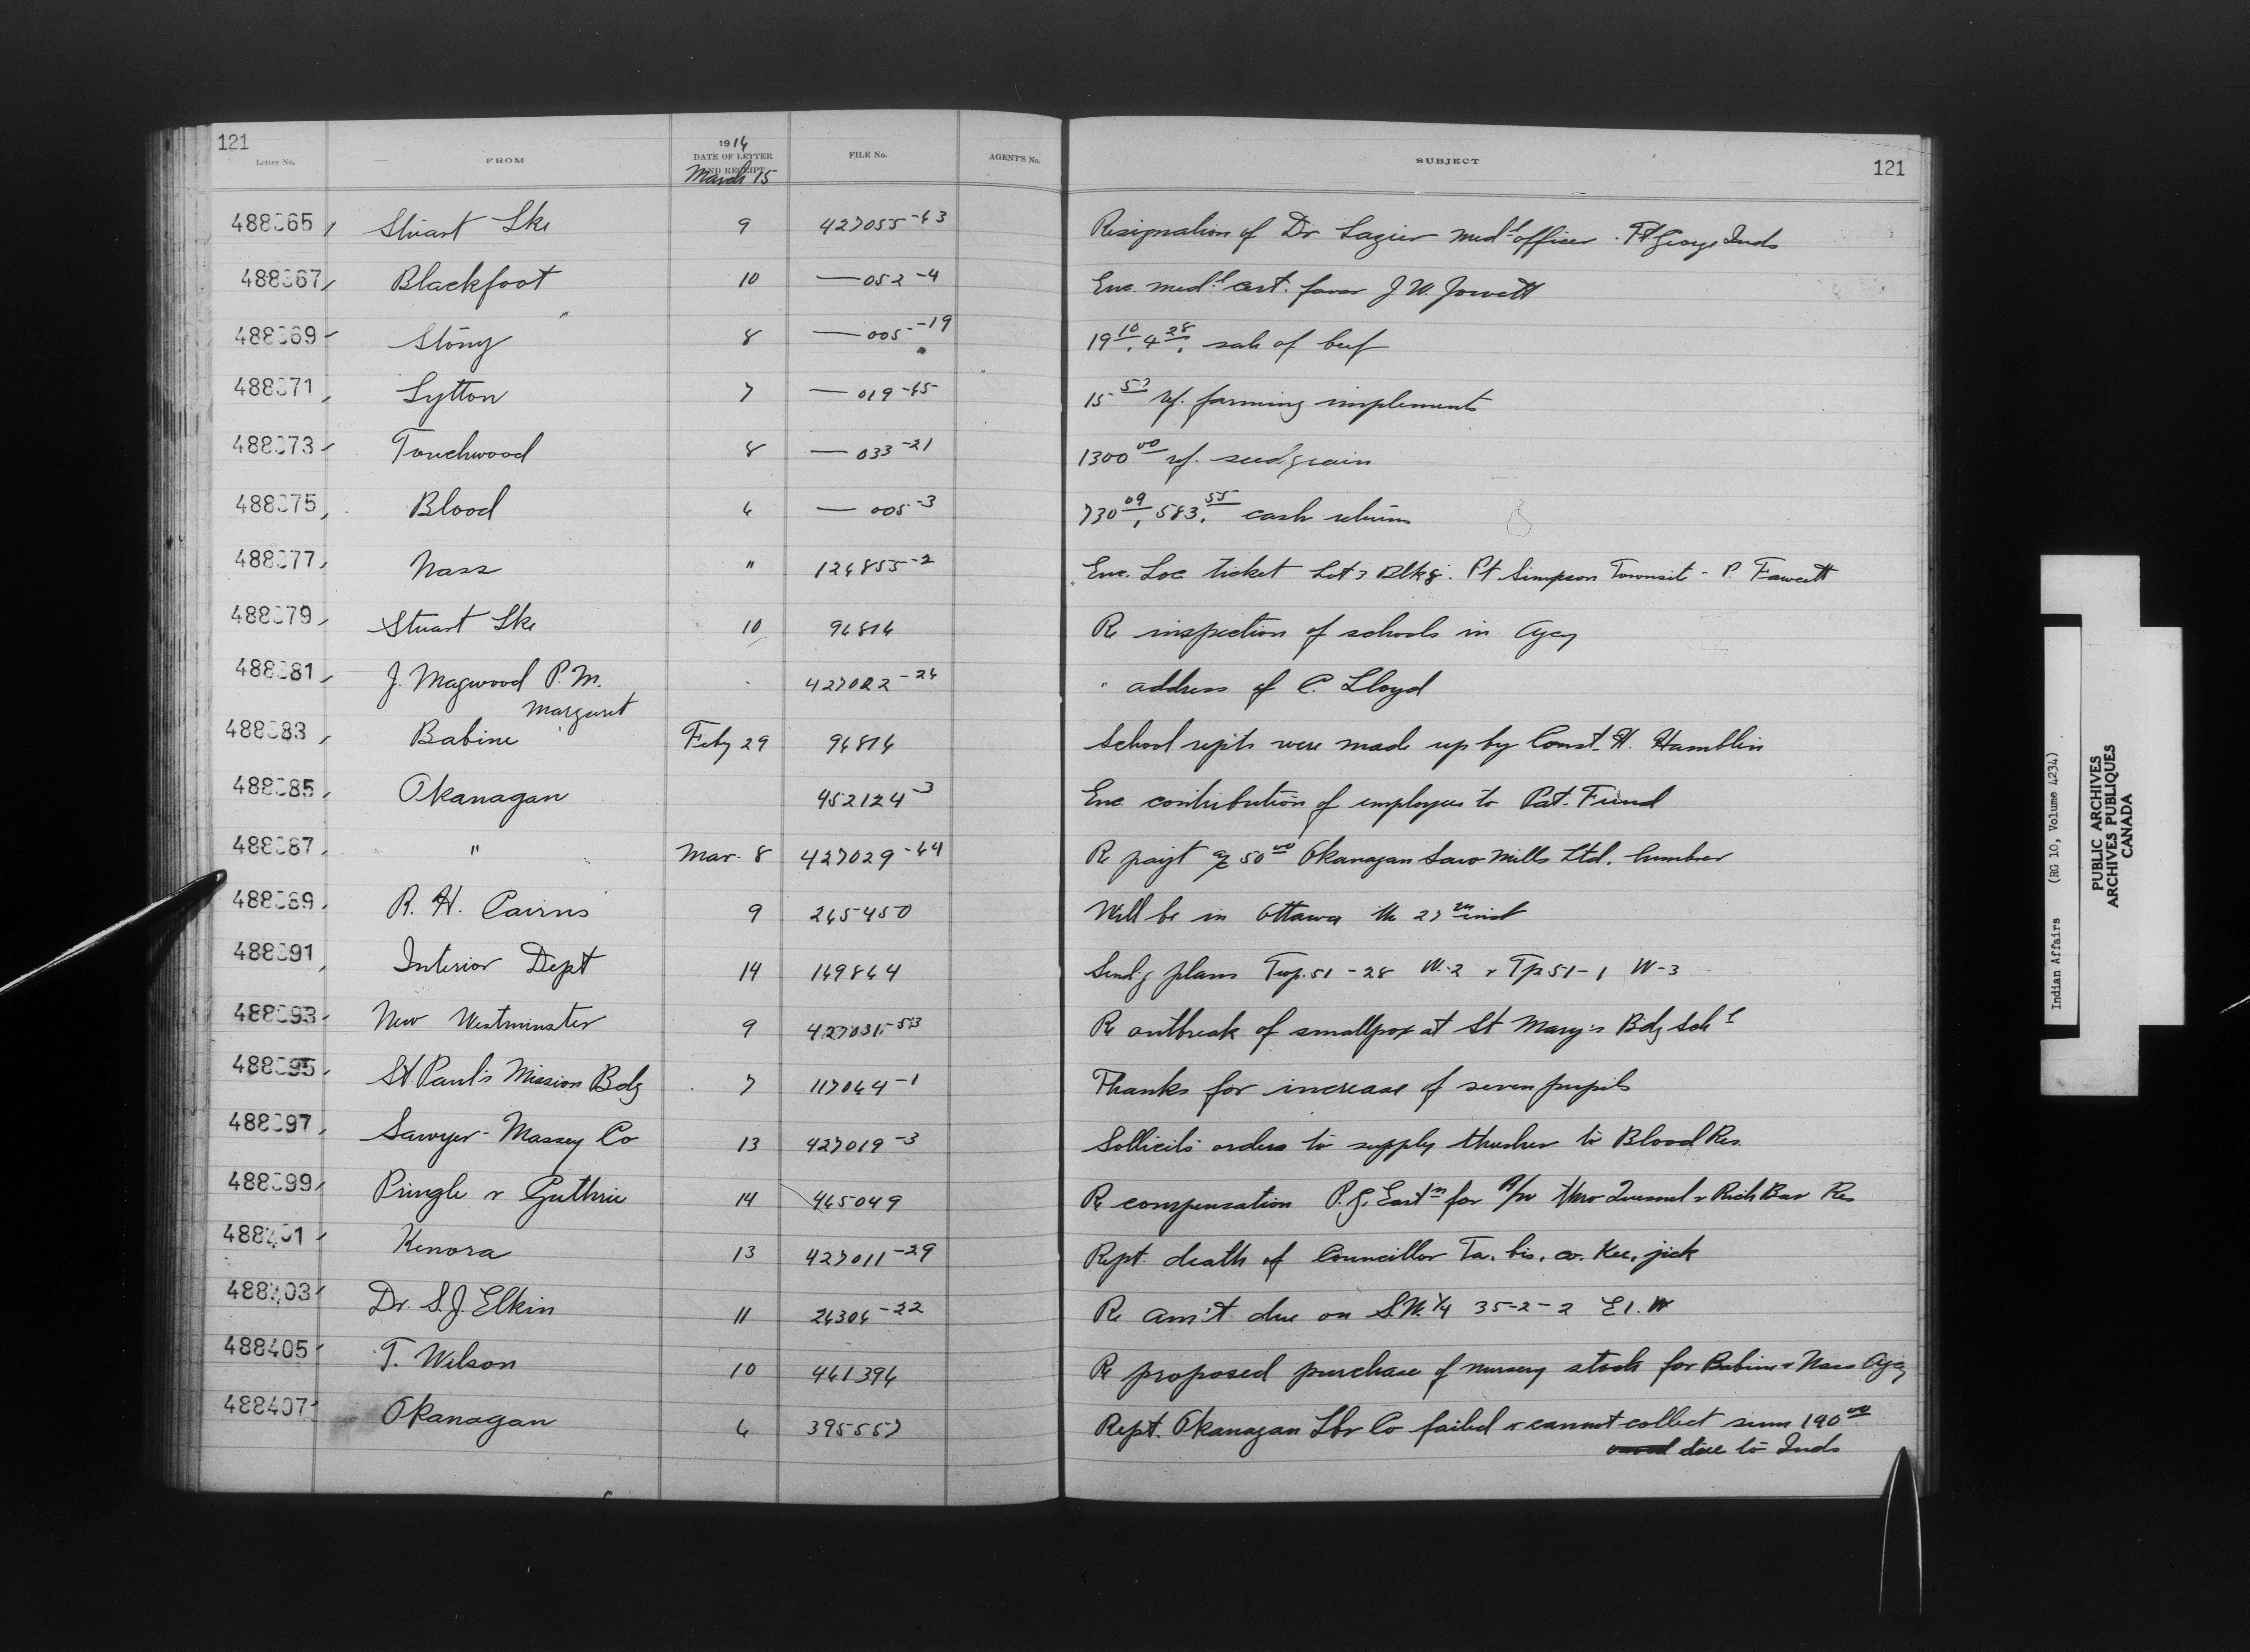 121
Letter No. FROM 1916 DATE OF LETTER AND RECEIPT FILE No. AGENT'S No. SUBJECT 121
March 15
488365 Stuart Lke 9 427055-63 Resignation of Dr Lazier med'l officer. Ft George Inds
488367 Blackfoot 10 — 052-4 Enc. med'l cert. favor J. W. Jowett
488369 Stony 8 — 005-19 19 10, 4 28, sale of beef
488371 Lytton 7 — 019-65 15 57 rf. farming implements
488373 Touchwood 8 — 033-21 1300 00 rf. seed grain
488375 Blood 6 — 005-3 730 09, 583. 55 cash returns
488377 Nass " 126855-2 Enc. Loc ticket Lot 7 Blk 8. Pt Simpson Townsite - P. Fawcett
488379 Stuart Lke 10 96816 Re inspection of schools in Agcy
488381 J. Magwood P. M. 427022-26 " address of C. Lloyd
Margaret
488383 Babine Feby 29 96816 School repts were made up by Const. H. Hamblin
488385 Okanagan 452124-3 Enc. contribution of employees to Pat. Fund
488387 " Mar. 8 427029-64 Re payt a/c 50 00 Okanagan Saw Mills Ltd. lumber
488389 R. H. Cairns 9 265450 Will be in Ottawa the 27th inst
488391 Interior Dept 14 169864 Send'g plans Twp. 51-28 W.-2 & Tp 51-1 W-3
488393 New Westminster 9 427031-53 Re outbreak of smallpox at St Mary's Bdg Sch'l
488395 St Paul's Mission Bdg 7 117064-1 Thanks for increase of seven pupils
488397 Sawyer-Massey Co 13 427019-3 Sollicits orders to supply thresher to Blood Res.
488399 Pringle & Guthrie 14 465049 Re compensation P. G. East'n for R/W thro Quesnel & Rich Bar Res
488401 Kenora 13 427011-29 Rept. death of Councillor Ta. bis. co. Kee. jick
488403 Dr. S. J. Elkin 11 26306-22 Re am't due on S.W. 1/4 35-2-2 E 1. W
488405 T. Wilson 10 461396 Re proposed purchase of nursery stock for Babine & Nass Agcy
488407 Okanagan 6 395557 Rept. Okanagan Lbr Co failed & cannot collect sum 190 00
due to Inds
Indian Affairs (RG 10, Volume 4234)
PUBLIC ARCHIVES
ARCHIVES PUBLIQUES
CANADA